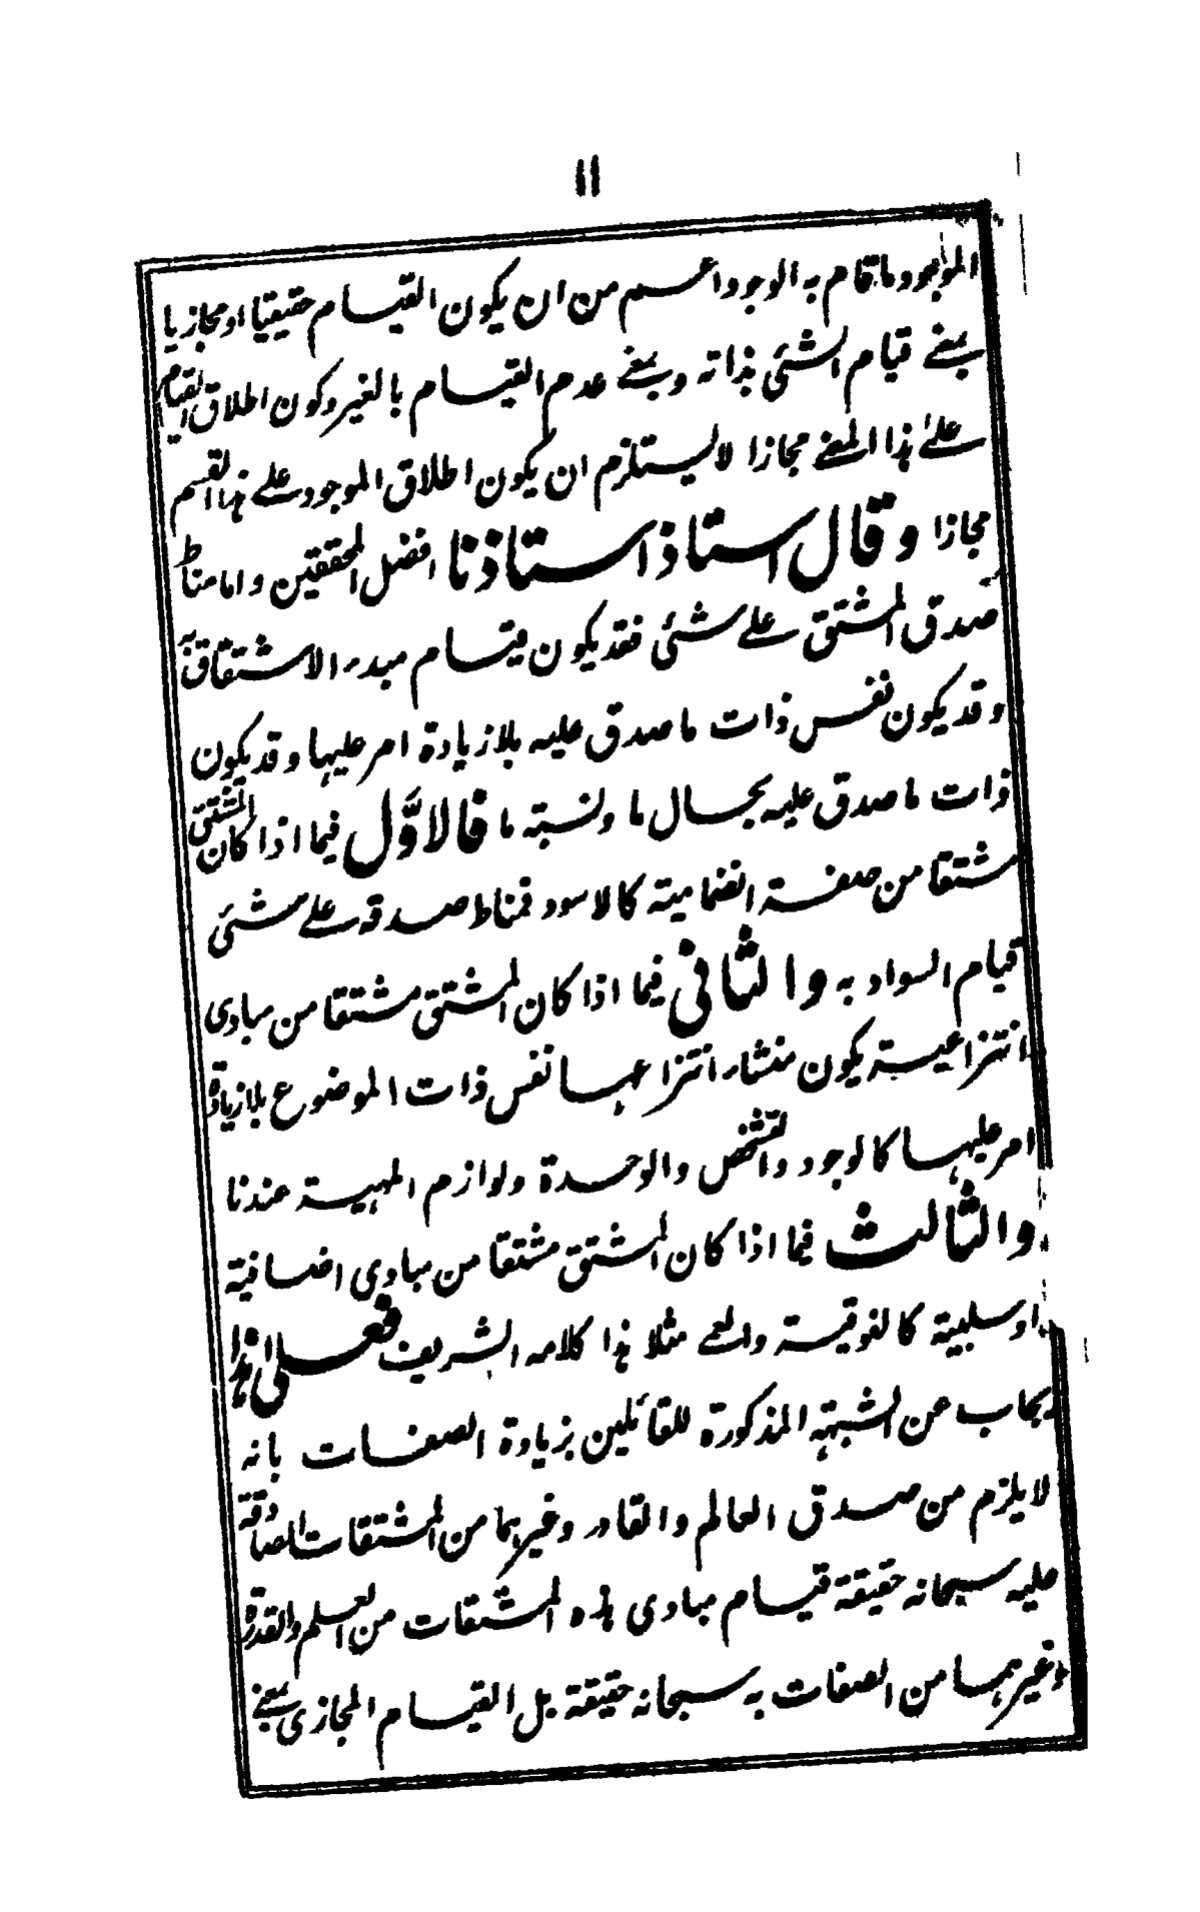 ۱۱
الموجود ما قام به الوجود اعم من ان يكون القيام حقيقيا او مجازيا
بمعنے قيام الشئ بذاته وبمعنے عدم القيام بالغير وكون اطلاق القيام
علے هذا المعنے مجازا لا يستلزم ان يكون اطلاق الموجود علے هذا القسم
مجازا وقال استاذ استاذنا افضل المحققين واما مناط
صدق المشتق علے شئ فقد يكون قيام مبدء الاشتقاق به
وقد يكون نفس ذات ما صدق عليه بلا زيادة امر عليها وقد يكون
ذات ما صدق عليه بحال ما ونسبته ما فالاوّل فيما اذا كان المشتق
مشتقا من صفة انضمامية كالاسود فمناط صدقه علے شئ
قيام السواد به والثانى فيما اذا كان المشتق مشتقا من مبادى
انتزاعية يكون منشاء انتزاعها نفس ذات الموضوع بلا زيادة
امر عليها كالوجود والتشخص والوحدة ولوازم المهية عندنا
والثالث فيما اذا كان المشتق مشتقا من مبادى اضافية
او سلبية كالفوقية والعمے مثلا هذا كلامه الشريف فعلى هذا
يجاب عن الشبهة المذكورة للقائلين بزيادة الصفات بانه
لا يلزم من صدق العالم والقادر وغيرهما من المشتقات الصادقة
عليه سبحانه حقيقة قيام مبادى هذه المشتقات من العلم والقدرة
وغيرهما من الصفات به سبحانه حقيقة بل القيام المجازى بمعنے